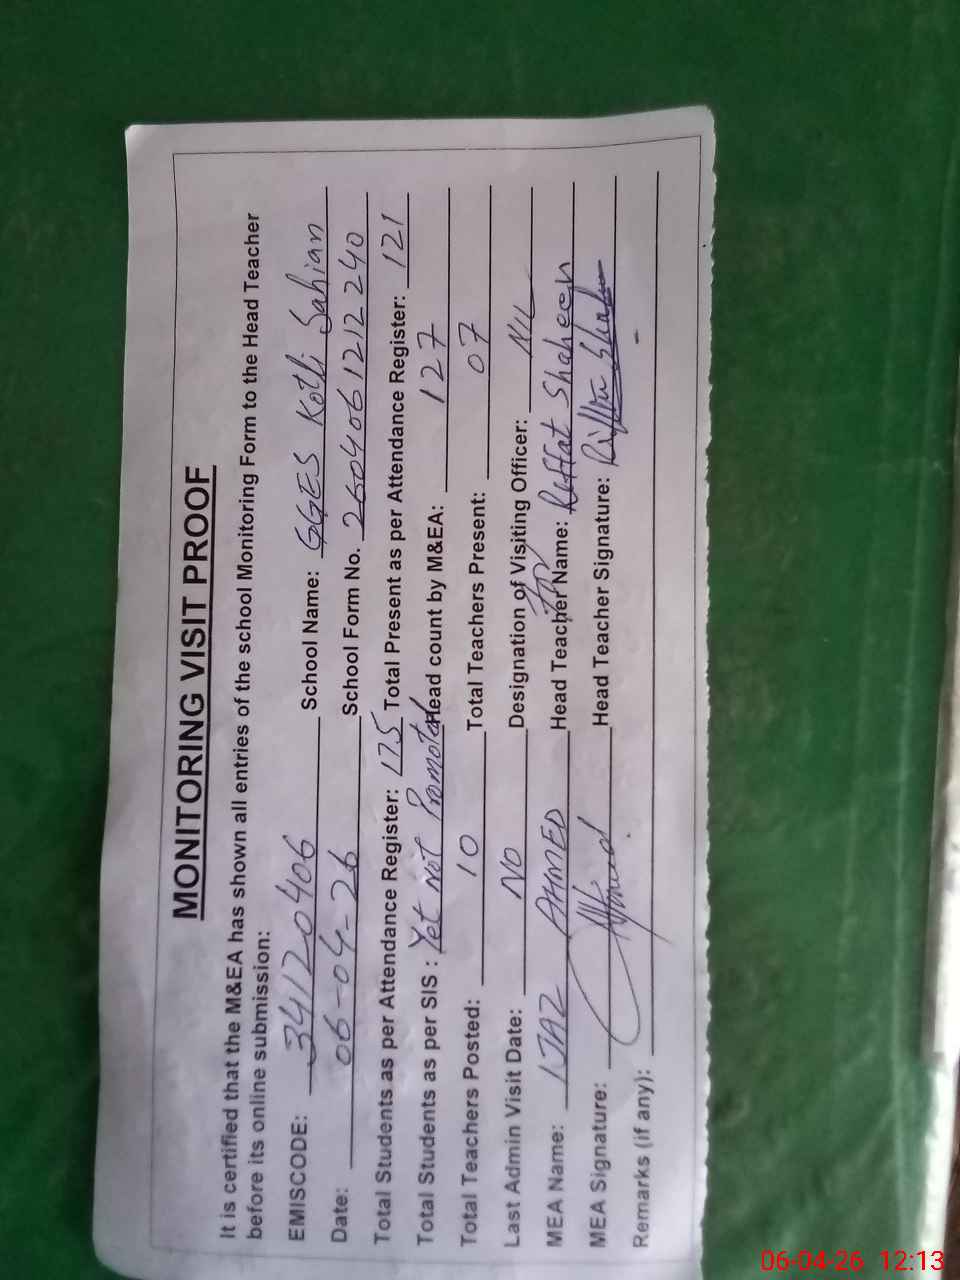 MONITORING VISIT PROOF
It is certified that the M&EA has shown all entries of the school Monitoring Form to the Head Teacher
before its online submission:
EMISCODE: 34120406 School Name: GGES Kotli Sahian
Date: 06-04-26 School Form No. 2604061212240
Total Students as per Attendance Register: 175 Total Present as per Attendance Register: 121
Total Students as per SIS : Yet not Promoted Head count by M&EA: 127
Total Teachers Posted: 10 Total Teachers Present: 07
Last Admin Visit Date: NO Designation of Visiting Officer: NIL
MEA Name: IJAZ AHMED Head Teacher Name: Riffat Shaheen
MEA Signature: Head Teacher Signature:
Remarks (if any):
06-04-26 12:13